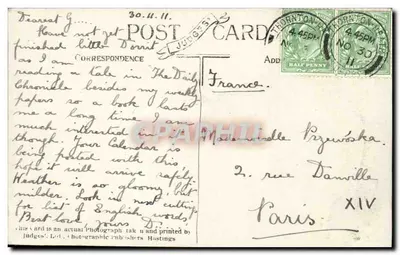 Dearest G...
30.11.11.
Have not get
finished little Dorrit
as I am
reading a tale in The Daily
Chronicle besides my weekly
papers so a book lasts
me a long time I am
much interested in it
though. Your Calendar is
being posted with this
hope it will arrive safely.
Weather is so gloomy, but
milder. Look in next cutting
for list of English words.
Best love, yours D...
This card is an actual Photograph taken and printed by
Judges', Ltd., Photographic Publishers, Hastings
POST CARD
JUDGES
CORRESPONDENCE
THORNTON HEATH
4.45PM
NO 30
11
THORNTON HEATH
4.45PM
NO 30
11
HALF PENNY
France.
Mademoiselle
2, rue Danville
Paris
XIV